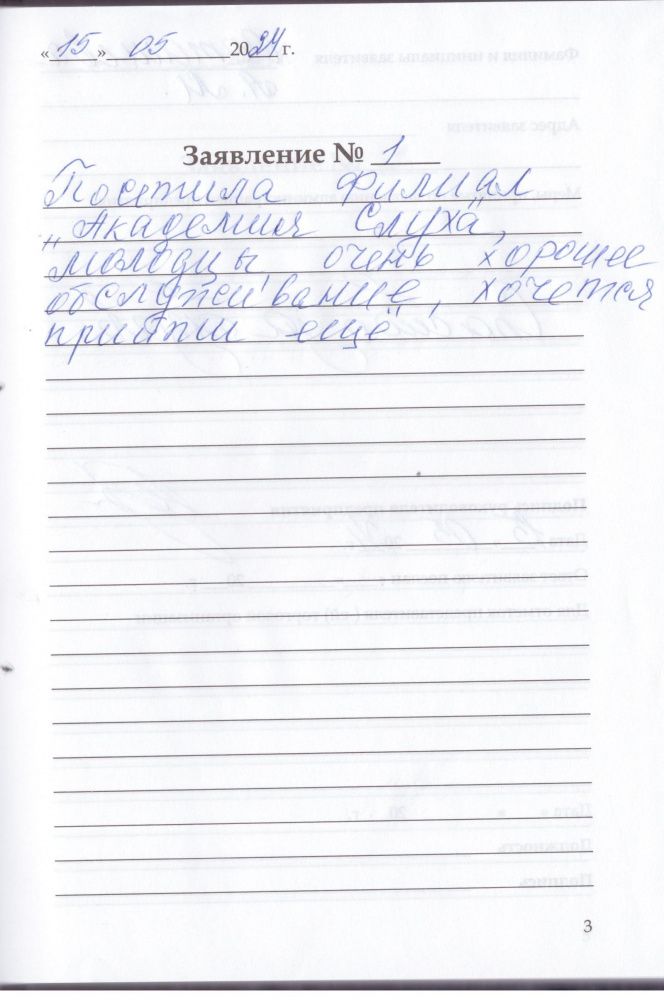 « 15 » 05 2024 г.
Заявление № 1
Посетила филиал
„Академия Слуха",
молодцы, очень хорошее
обслуживание, хочется
прийти ещё
3